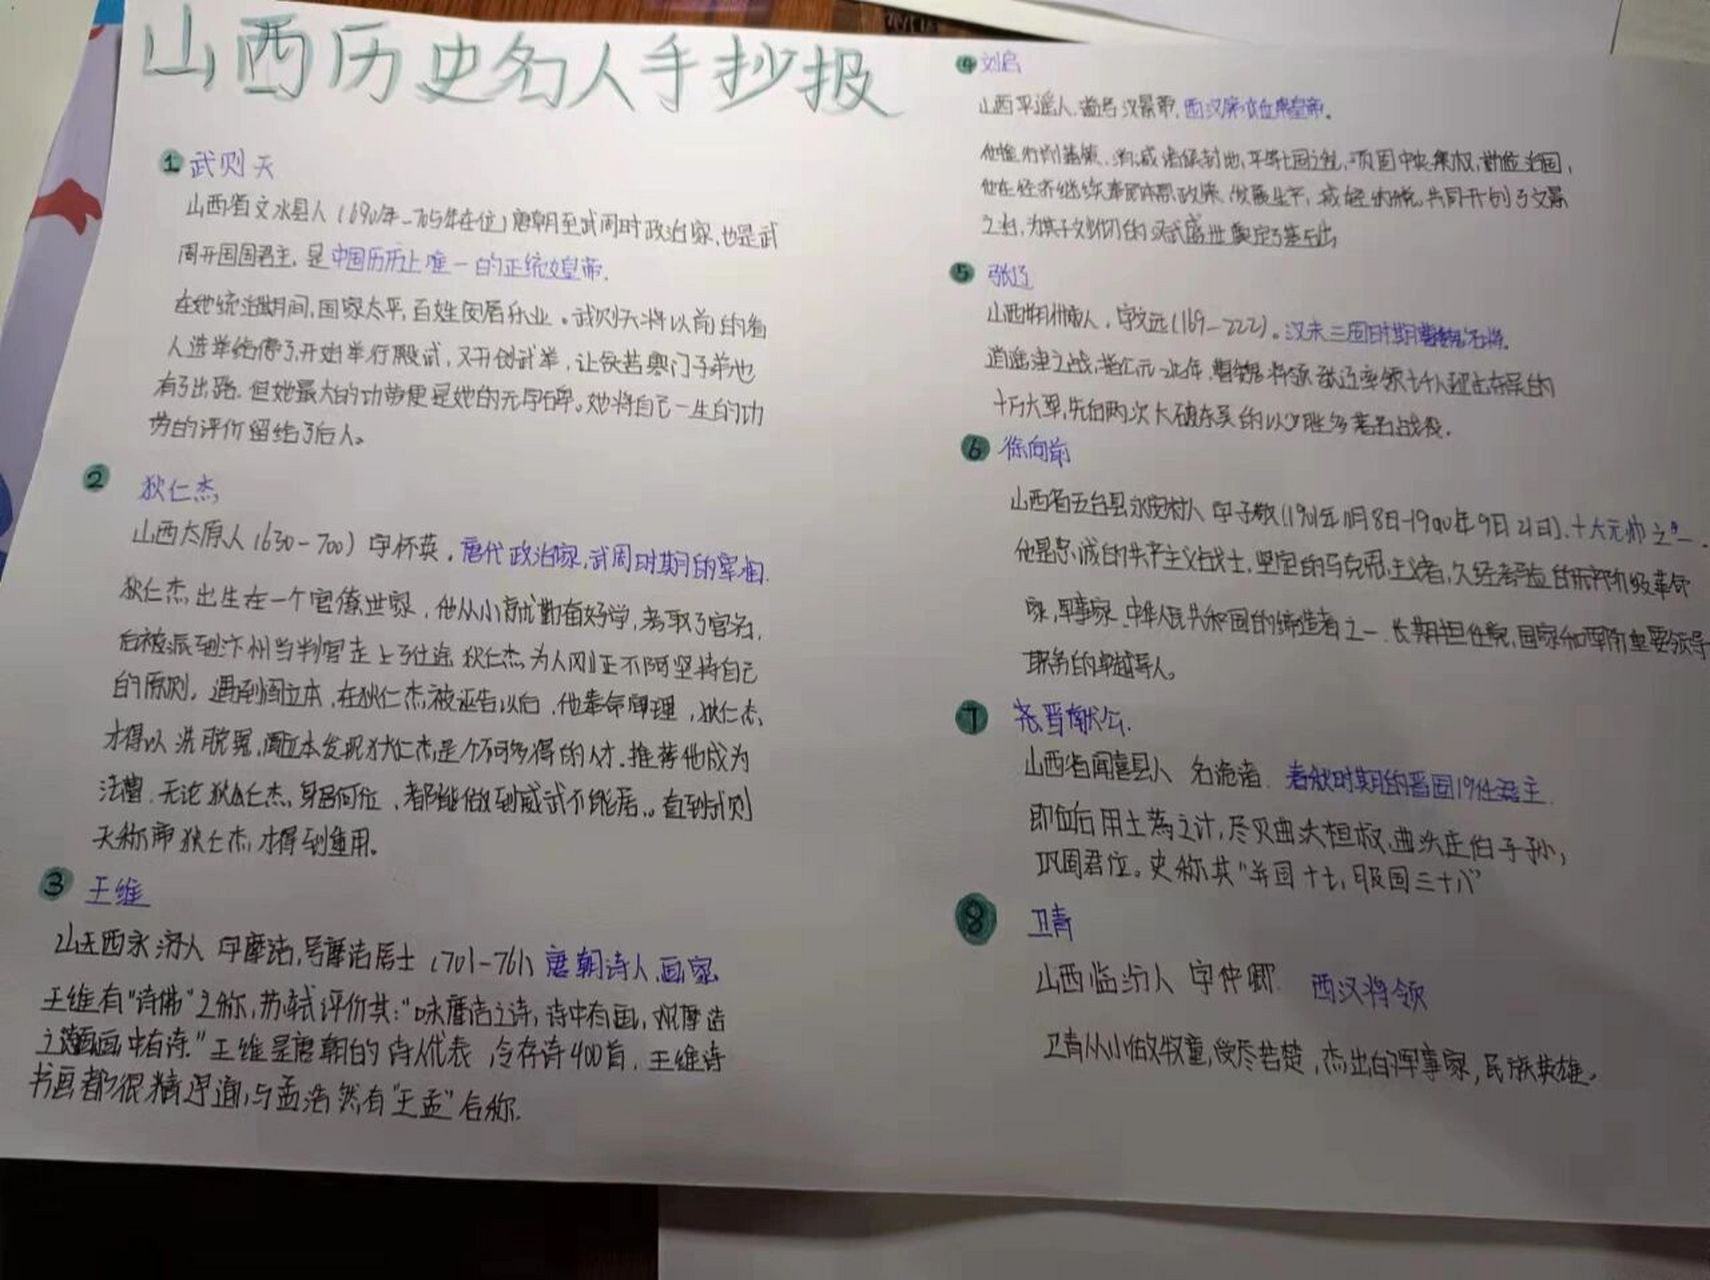 山西历史名人手抄报
1 武则天
山西省文水县人(690年-705年在位)唐朝至武周时政治家,也是武
周开国国君主,是中国历历上唯一的正统女皇帝.
在她统治期间,国家太平,百姓安居乐业。武则天将以前的
人选举给停了,开始举行殿试,又开创武举,让穷苦寒门子弟也
有了出路,但她最大的功劳便是她的无字碑。她将自己一生的功
劳的评价留给了后人。
2 狄仁杰
山西太原人(630-700)字怀英,唐代政治家,武周时期的宰相.
狄仁杰出生在一个官僚世家,他从小就勤奋好学,考取了官名,
后被派到汴州当判官走上了仕途 狄仁杰为人刚正不阿坚持自己
的原则,遇到阎立本,在狄仁杰被诬告以后,他奉命审理,狄仁杰
才得以洗脱冤,阎立本发现狄仁杰是个不可多得的人才.推荐他成为
法曹.无论狄仁杰身居何位,都能做到威武不能屈。直到武则
天称帝狄仁杰才得到重用。
3 王维
山西永济人 字摩诘,号摩诘居士(701-761)唐朝诗人,画家
王维有“诗佛”之称,苏轼评价其:“味摩诘之诗,诗中有画,观摩诘
之画,画中有诗.”王维是唐朝的诗人代表 令存诗400首,王维诗
书画都很精 通,与孟浩然有“王孟”合称.
4 刘启
山西平遥人,谥号汉景帝,西汉第六位皇帝.
他推行削藩策,削减诸侯封地,平七国之乱,巩固中央集权,勤俭治国,
他在经济继续奉行 政策,发展生产,减轻赋税,共同开创了文景
之治,为其子刘彻的汉武盛世奠定了基础
5 张辽
山西朔州人,字文远(169-222)。汉末三国时期曹魏名将.
逍遥津之战,指公元二一五年,曹魏将领张辽率领七千人迎击东吴的
十万大军,先后两次大破东吴的以少胜多著名战役.
6 徐向前
山西省五台县永安村人 字子敬(1901年11月8日-1990年9日21日).十大元帅之一.
他是忠诚的共产主义战士,坚定的马克思主义者,久经考验的无产阶级革命
家,军事家、中华人民共和国的缔造者之一.长期担任党,国家和军队重要领导
职务的卓越导人。
7 晋献公.
山西省闻喜县人 名诡诸. 春秋时期的晋国19任君主.
即位后用士蒍之计,尽灭曲沃桓叔,曲沃庄伯子孙,
巩固君位。史称其“并国十七,服国三十八”
8 卫青
山西临汾人 字仲卿. 西汉将领
卫青从小做牧童,受尽苦楚,杰出的军事家,民族英雄。